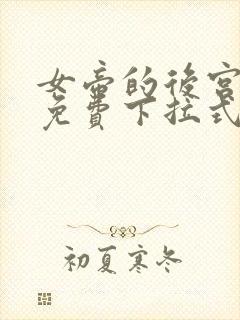 女帝的後宮
免費下拉式
初夏寒冬